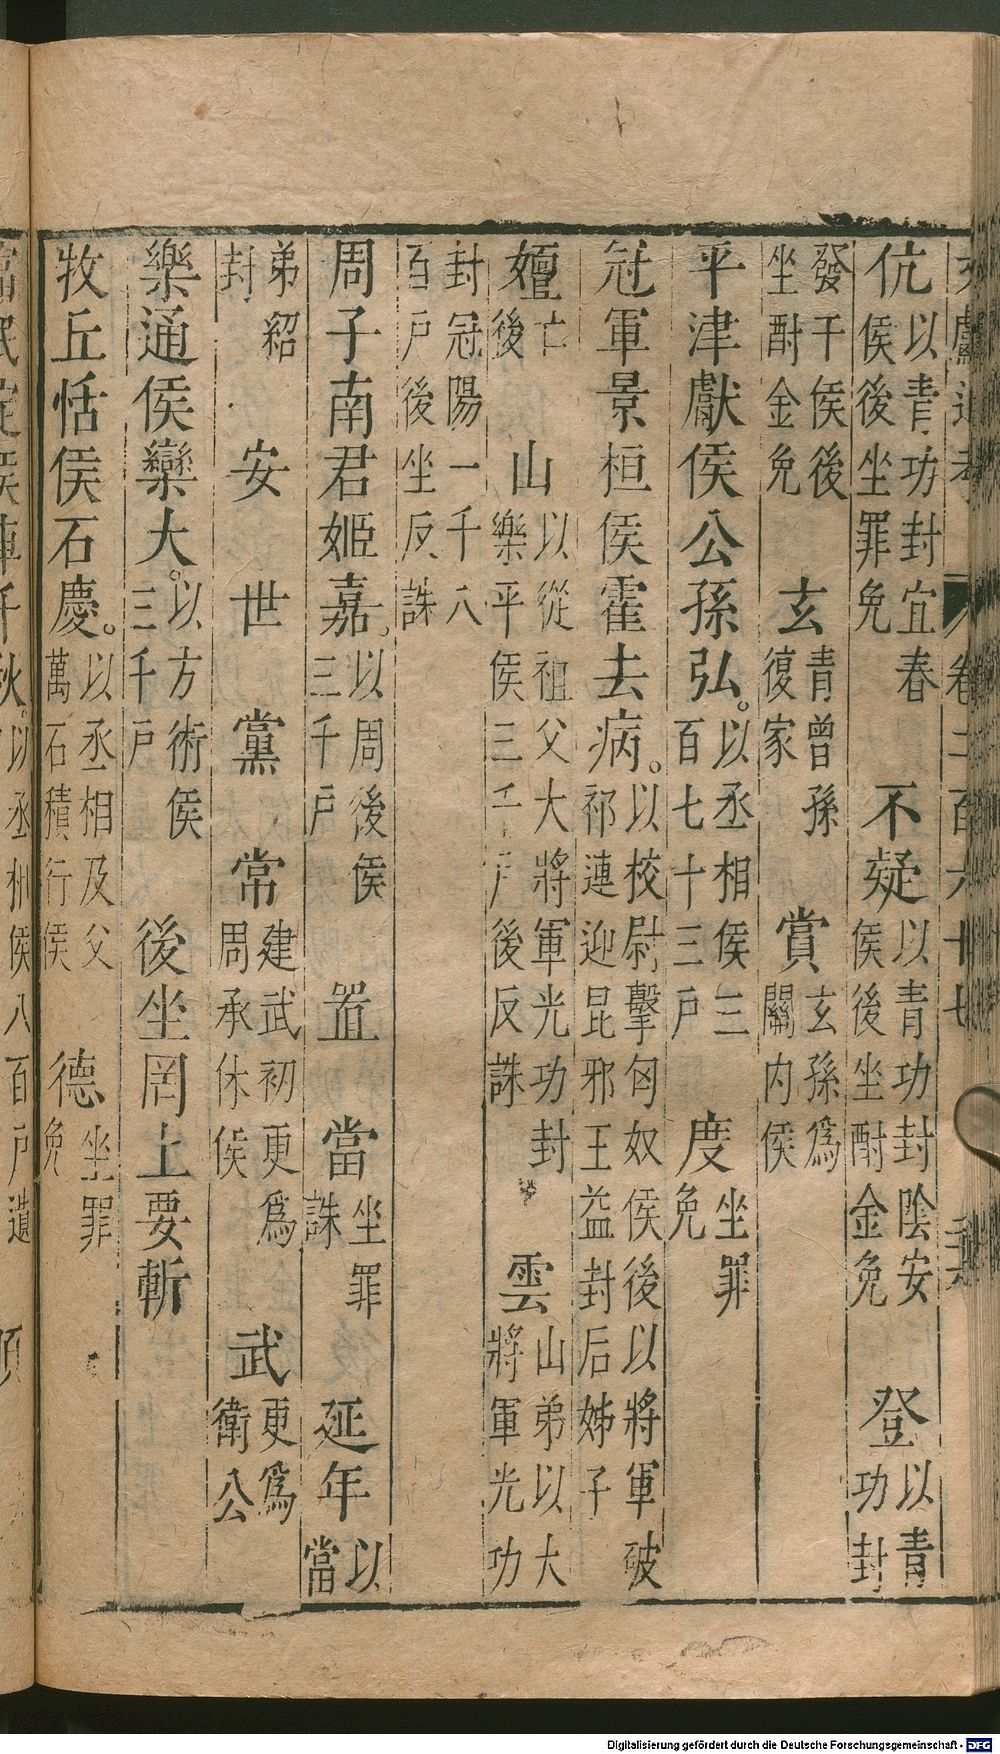 文獻通考 卷二百六十七
伉 以青功封宜春侯後坐罪免 不疑 以青功封陰安侯後坐酎金免 登 以青功封
發干侯後坐酎金免 玄 青曾孫復家 賞 玄孫爲關内侯
平津獻侯公孫弘。以丞相侯三百七十三戶 度 坐罪免
冠軍景桓侯霍去病。以校尉擊匈奴侯後以將軍破祁連迎昆邪王益封后姊子
嬗 亡後 山 以從祖父大將軍光功封樂平侯三千戶後反誅 雲 山弟以大將軍光功
封冠陽一千八百戶後坐反誅
周子南君姬嘉。以周後侯三千戶 置 當 坐罪誅 延年 以當
弟紹封 安 世 黨 常 建武初更爲周承休侯 武 更爲衛公
樂通侯欒大。以方術侯三千戶 後坐罔上要斬
牧丘恬侯石慶。以丞相及父萬石積行侯 德 坐罪免
富民定侯車千秋。以丞相侯八百戶遺
Digitalisierung gefördert durch die Deutsche Forschungsgemeinschaft - DFG